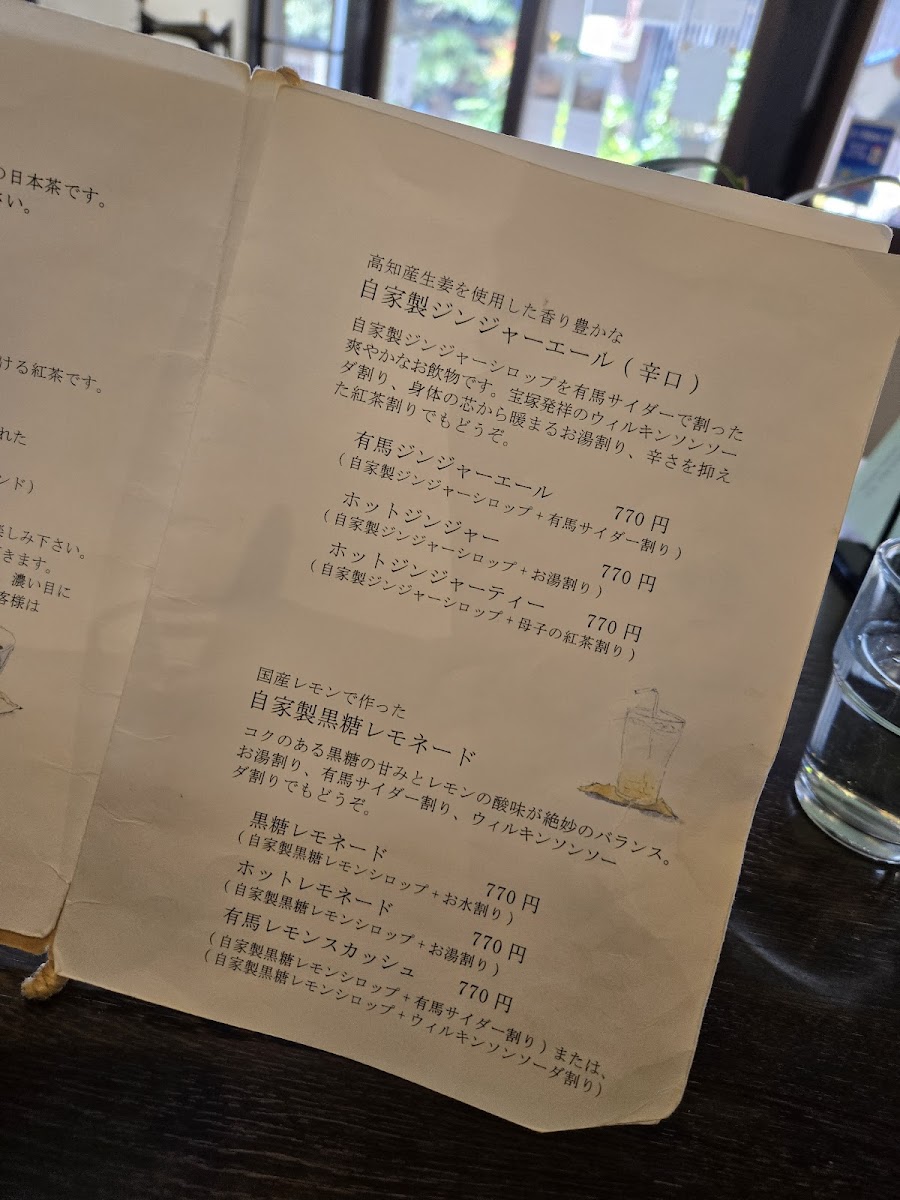 の日本茶です。
さい。
ける紅茶です。
れた
ンド)
楽しみ下さい。
きます。
濃い目に
客様は
高知産生姜を使用した香り豊かな
自家製ジンジャーエール(辛口)
自家製ジンジャーシロップを有馬サイダーで割った
爽やかなお飲物です。宝塚発祥のウィルキンソンソー
ダ割り、身体の芯から暖まるお湯割り、辛さを抑え
た紅茶割りでもどうぞ。
有馬ジンジャーエール 770円
(自家製ジンジャーシロップ+有馬サイダー割り)
ホットジンジャー 770円
(自家製ジンジャーシロップ+お湯割り)
ホットジンジャーティー 770円
(自家製ジンジャーシロップ+母子の紅茶割り)
国産レモンで作った
自家製黒糖レモネード
コクのある黒糖の甘みとレモンの酸味が絶妙のバランス。
お湯割り、有馬サイダー割り、ウィルキンソンソー
ダ割りでもどうぞ。
黒糖レモネード 770円
(自家製黒糖レモンシロップ+お水割り)
ホットレモネード 770円
(自家製黒糖レモンシロップ+お湯割り)
有馬レモンスカッシュ 770円
(自家製黒糖レモンシロップ+有馬サイダー割り)または、
(自家製黒糖レモンシロップ+ウィルキンソンソーダ割り)